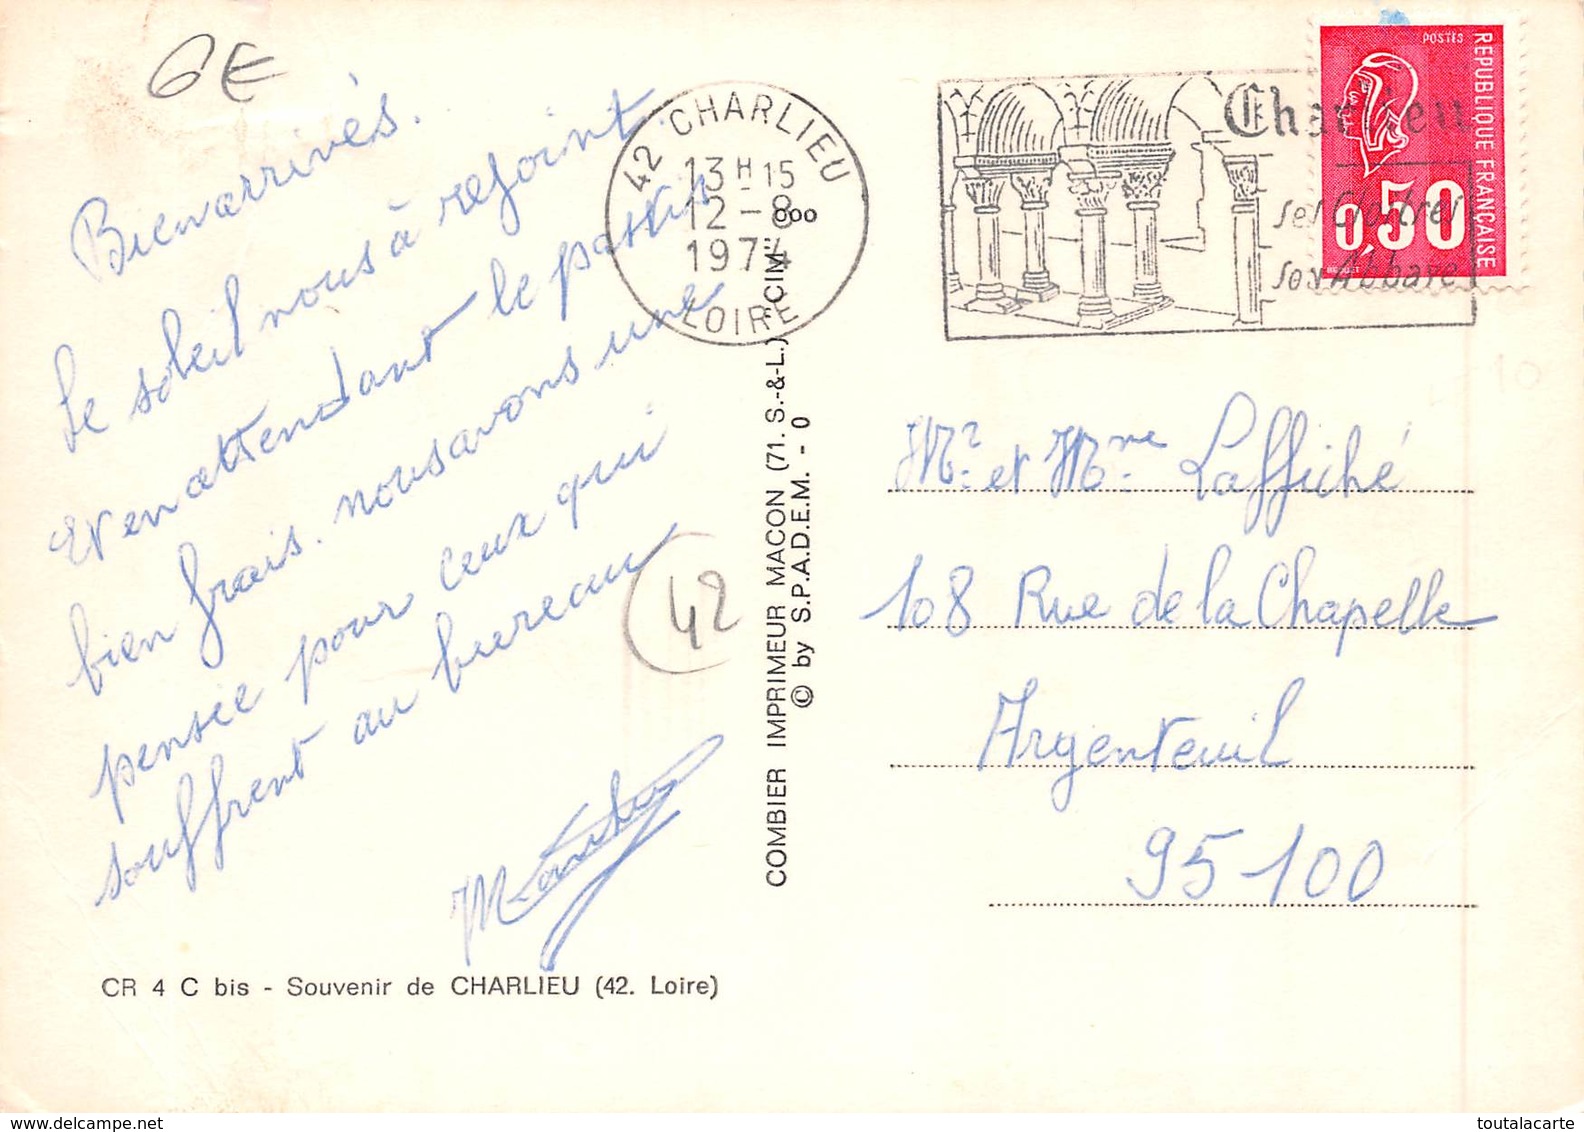 6€
Bien arrivés.
Le soleil nous à rejoint.
Et en attendant le pastis
bien frais. nous avons une
pensée pour ceux qui
souffrent au bureau
42
CR 4 C bis - Souvenir de CHARLIEU (42. Loire)
COMBIER IMPRIMEUR MACON (71. S.-&-L.) "CIM"
© by S.P.A.D.E.M. - 0
42 CHARLIEU
13H15
12-8
1974
LOIRE
Charlieu
ses Cloîtres
son Abbaye
POSTES
REPUBLIQUE FRANÇAISE
0,50
Mr. et Mme Laffiché
108 Rue de la Chapelle
Argenteuil
95100
toutalacarte